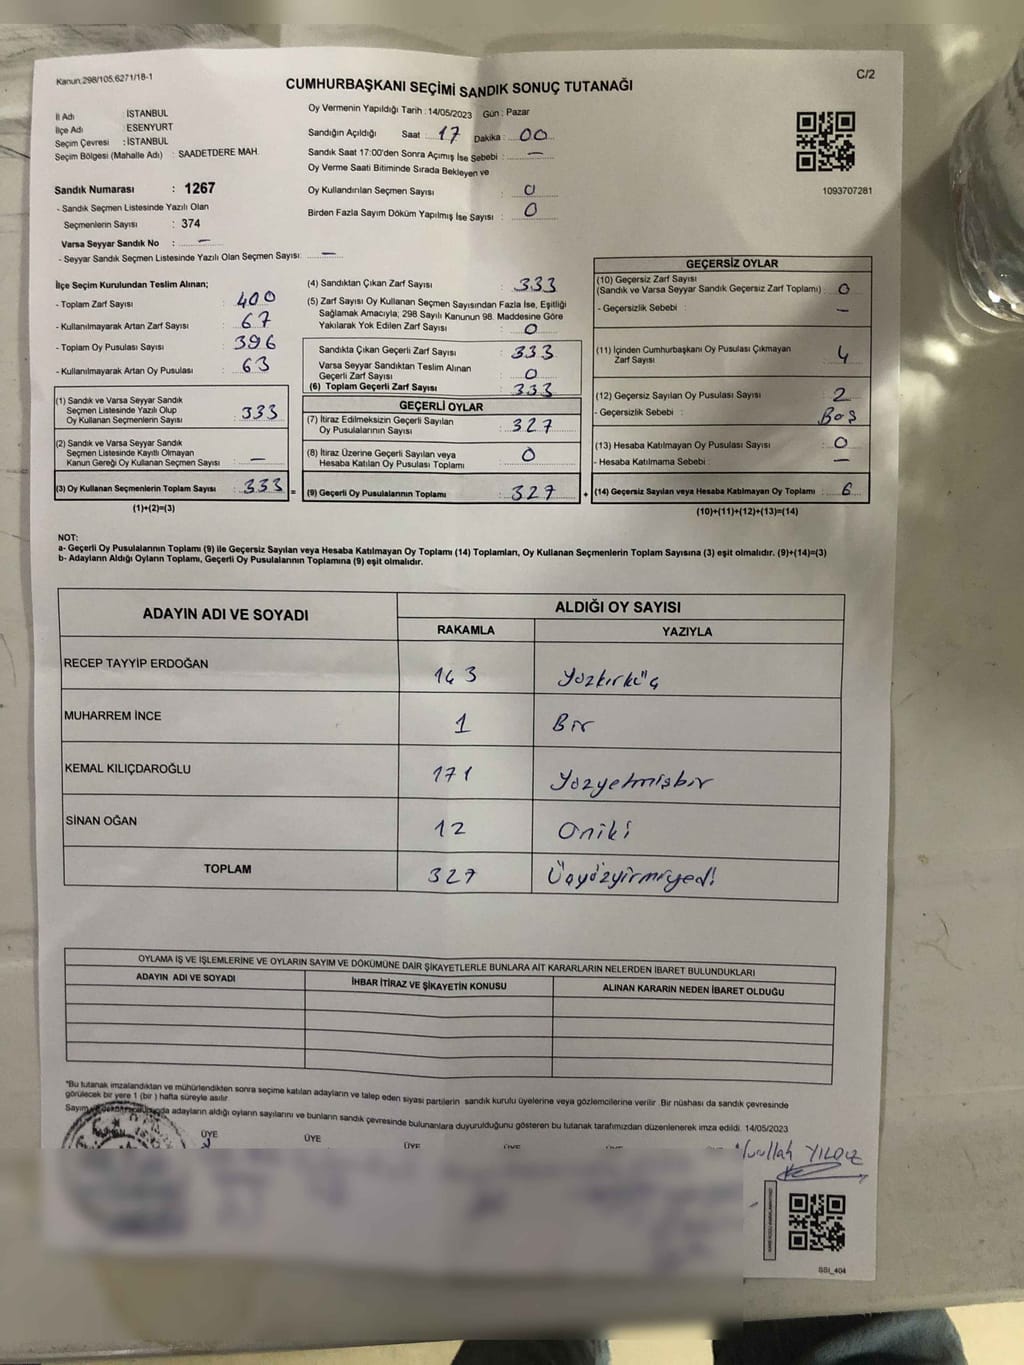 Kanun.298/105,6271/18-1
C/2
CUMHURBAŞKANI SEÇİMİ SANDIK SONUÇ TUTANAĞI
İl Adı İSTANBUL
İlçe Adı : ESENYURT
Seçim Çevresi : İSTANBUL
Seçim Bölgesi (Mahalle Adı) : SAADETDERE MAH.
Sandık Numarası : 1267
- Sandık Seçmen Listesinde Yazılı Olan
Seçmenlerin Sayısı : 374
Varsa Seyyar Sandık No : —
- Seyyar Sandık Seçmen Listesinde Yazılı Olan Seçmen Sayısı: —
Oy Vermenin Yapıldığı Tarih : 14/05/2023 Gün : Pazar
Sandığın Açıldığı Saat : 17 Dakika : 00
Sandık Saat 17:00'den Sonra Açımış İse Sebebi : —
Oy Verme Saati Bitiminde Sırada Bekleyen ve
Oy Kullandırılan Seçmen Sayısı : 0
Birden Fazla Sayım Döküm Yapılmış İse Sayısı : 0
1093707281
İlçe Seçim Kurulundan Teslim Alınan;
- Toplam Zarf Sayısı : 400
- Kullanılmayarak Artan Zarf Sayısı : 67
- Toplam Oy Pusulası Sayısı : 396
- Kullanılmayarak Artan Oy Pusulası : 63
(1) Sandık ve Varsa Seyyar Sandık
Seçmen Listesinde Yazılı Olup
Oy Kullanan Seçmenlerin Sayısı : 333
(2) Sandık ve Varsa Seyyar Sandık
Seçmen Listesinde Kayıtlı Olmayan
Kanun Gereği Oy Kullanan Seçmen Sayısı : —
(3) Oy Kullanan Seçmenlerin Toplam Sayısı : 333 =
(1)+(2)=(3)
(4) Sandıktan Çıkan Zarf Sayısı : 333
(5) Zarf Sayısı Oy Kullanan Seçmen Sayısından Fazla İse, Eşitliği
Sağlamak Amacıyla; 298 Sayılı Kanunun 98. Maddesine Göre
Yakılarak Yok Edilen Zarf Sayısı : 0
Sandıkta Çıkan Geçerli Zarf Sayısı : 333
Varsa Seyyar Sandıktan Teslim Alınan
Geçerli Zarf Sayısı : 0
(6) Toplam Geçerli Zarf Sayısı : 333
GEÇERLİ OYLAR
(7) İtiraz Edilmeksizin Geçerli Sayılan
Oy Pusulalarının Sayısı : 327
(8) İtiraz Üzerine Geçerli Sayılan veya
Hesaba Katılan Oy Pusulası Toplamı : 0
(9) Geçerli Oy Pusulalarının Toplamı : 327 +
GEÇERSİZ OYLAR
(10) Geçersiz Zarf Sayısı
(Sandık ve Varsa Seyyar Sandık Geçersiz Zarf Toplamı) : 0
- Geçersizlik Sebebi : —
(11) İçinden Cumhurbaşkanı Oy Pusulası Çıkmayan
Zarf Sayısı : 4
(12) Geçersiz Sayılan Oy Pusulası Sayısı : 2
- Geçersizlik Sebebi : Boş
(13) Hesaba Katılmayan Oy Pusulası Sayısı : 0
- Hesaba Katılmama Sebebi : —
(14) Geçersiz Sayılan veya Hesaba Katılmayan Oy Toplamı : 6
(10)+(11)+(12)+(13)=(14)
NOT:
a- Geçerli Oy Pusulalarının Toplamı (9) ile Geçersiz Sayılan veya Hesaba Katılmayan Oy Toplamı (14) Toplamları, Oy Kullanan Seçmenlerin Toplam Sayısına (3) eşit olmalıdır. (9)+(14)=(3)
b- Adayların Aldığı Oyların Toplamı, Geçerli Oy Pusulalarının Toplamına (9) eşit olmalıdır.
ADAYIN ADI VE SOYADI ALDIĞI OY SAYISI
RAKAMLA YAZIYLA
RECEP TAYYİP ERDOĞAN 143 Yüzkırküç
MUHARREM İNCE 1 Bir
KEMAL KILIÇDAROĞLU 171 Yüzyetmişbir
SİNAN OĞAN 12 Oniki
TOPLAM 327 Üçyüzyirmiyedi
OYLAMA İŞ VE İŞLEMLERİNE VE OYLARIN SAYIM VE DÖKÜMÜNE DAİR ŞİKAYETLERLE BUNLARA AİT KARARLARIN NELERDEN İBARET BULUNDUKLARI
ADAYIN ADI VE SOYADI İHBAR İTİRAZ VE ŞİKAYETİN KONUSU ALINAN KARARIN NEDEN İBARET OLDUĞU
*Bu tutanak imzalandıktan ve mühürlendikten sonra seçime katılan adayların ve talep eden siyasi partilerin sandık kurulu üyelerine veya gözlemcilerine verilir .Bir nüshası da sandık çevresinde
görülecek bir yere 1 (bir ) hafta süreyle asılır.
Sayım adayların aldığı oyların sayılarını ve bunların sandık çevresinde bulunanlara duyurulduğunu gösteren bu tutanak tarafımızdan düzenlenerek imza edildi. 14/05/2023
ÜYE ÜYE ÜYE
YILDIZ
SSI_404